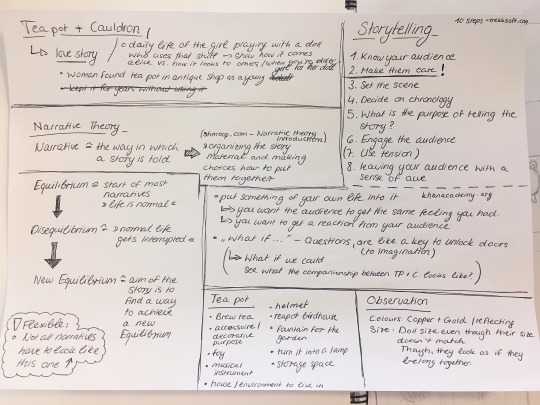 Teapot + Cauldron
↳ love story
○ daily life of the girl playing with a doll
who uses that stuff → show how it comes
alive vs. how it looks to others/when you're older
• Woman found teapot in antique shop as a young girl for the doll
- kept it for years without using it
10 steps - trekksoft.com
Storytelling_
1. Know your audience
2. Make them care!
3. Set the scene
4. Decide on chronology
5. What is the purpose of telling the
story?
6. Engage the audience
(7. Use tension)
8. Leaving your audience with a
sense of awe
Narrative Theory_
Narrative = the way in which
a story is told.
(shmoop.com - Narrative theory
introduction)
organizing the story
material and making
choices how to put
them together
Equilibrium = start of most
narratives
» life is normal «
Disequilibrium = » normal life
gets interrupted «
New Equilibrium = aim of the
story is to
find a way
to achieve
a new
Equilibrium
! Flexible:
• Not all narratives
have to look like
this one ↑
khanacademy.org
• put something of your own life into it
↳ you want the audience to get the same feeling you had.
↳ you want to get a reaction from your audience
• "What if..." - Questions, are like a key to unlock doors
(to imagination)
(↳ What if we could
see what the companionship between TP + C looks like?)
Teapot
• Brew tea
• accessoire/
decorative
purpose
• toy
• musical
instrument
• house/environment to live in
• helmet
• teapot birdhouse
• fountain for the
garden
• turn it into a lamp
• storage space
Observation
Colours: Copper + Gold / reflecting
Size: Doll size, even though their size
doesn't match.
Though, they look as if they
belong together.